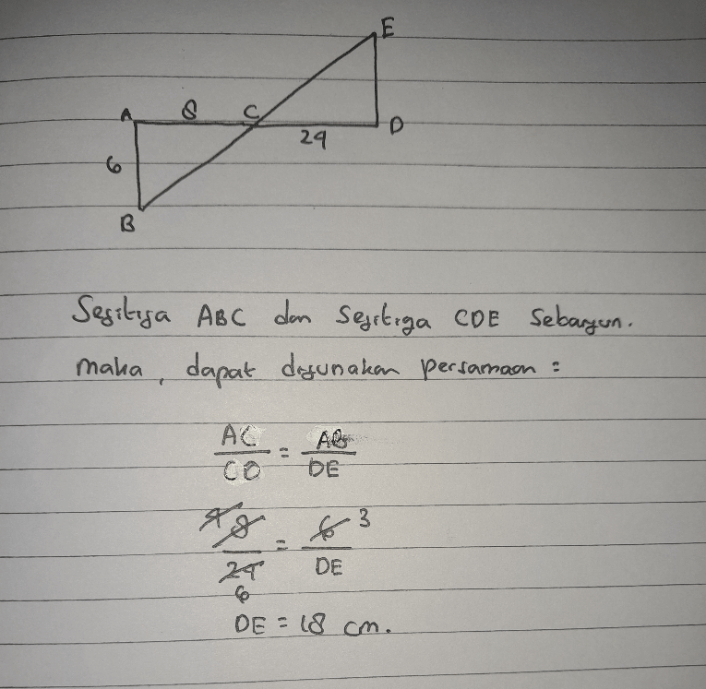 E
A 8 C
D
24
6
B
Segitiga ABC dan segitiga CDE sebangun.
maka, dapat digunakan persamaan :
AC/CD = AB/DE
4 8/24 6 = 6 3/DE
DE = 18 cm.